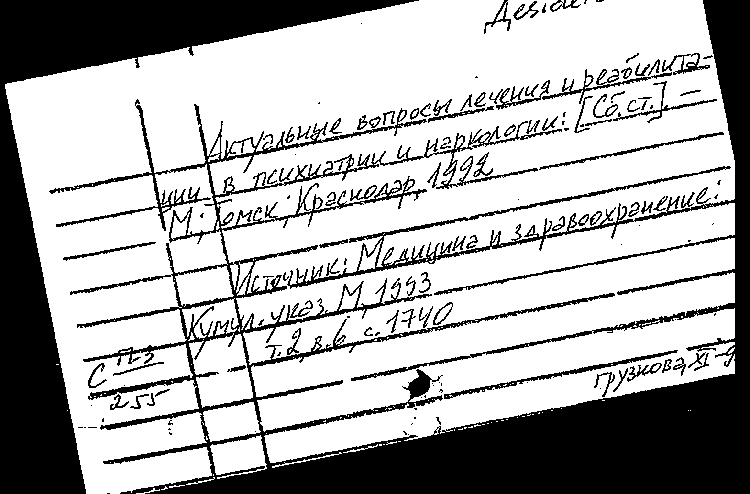 Desider
Актуальные вопросы лечения и реабилита-
ции в психиатрии и наркологии: [Сб. ст.]. —
М; Томск; Краснодар, 1992
Источник: Медицина и здравоохранение:
Кумул. указ. М, 1993
т. 2, в. 6, с. 1740
С П-3
255
грузкова, XI-9